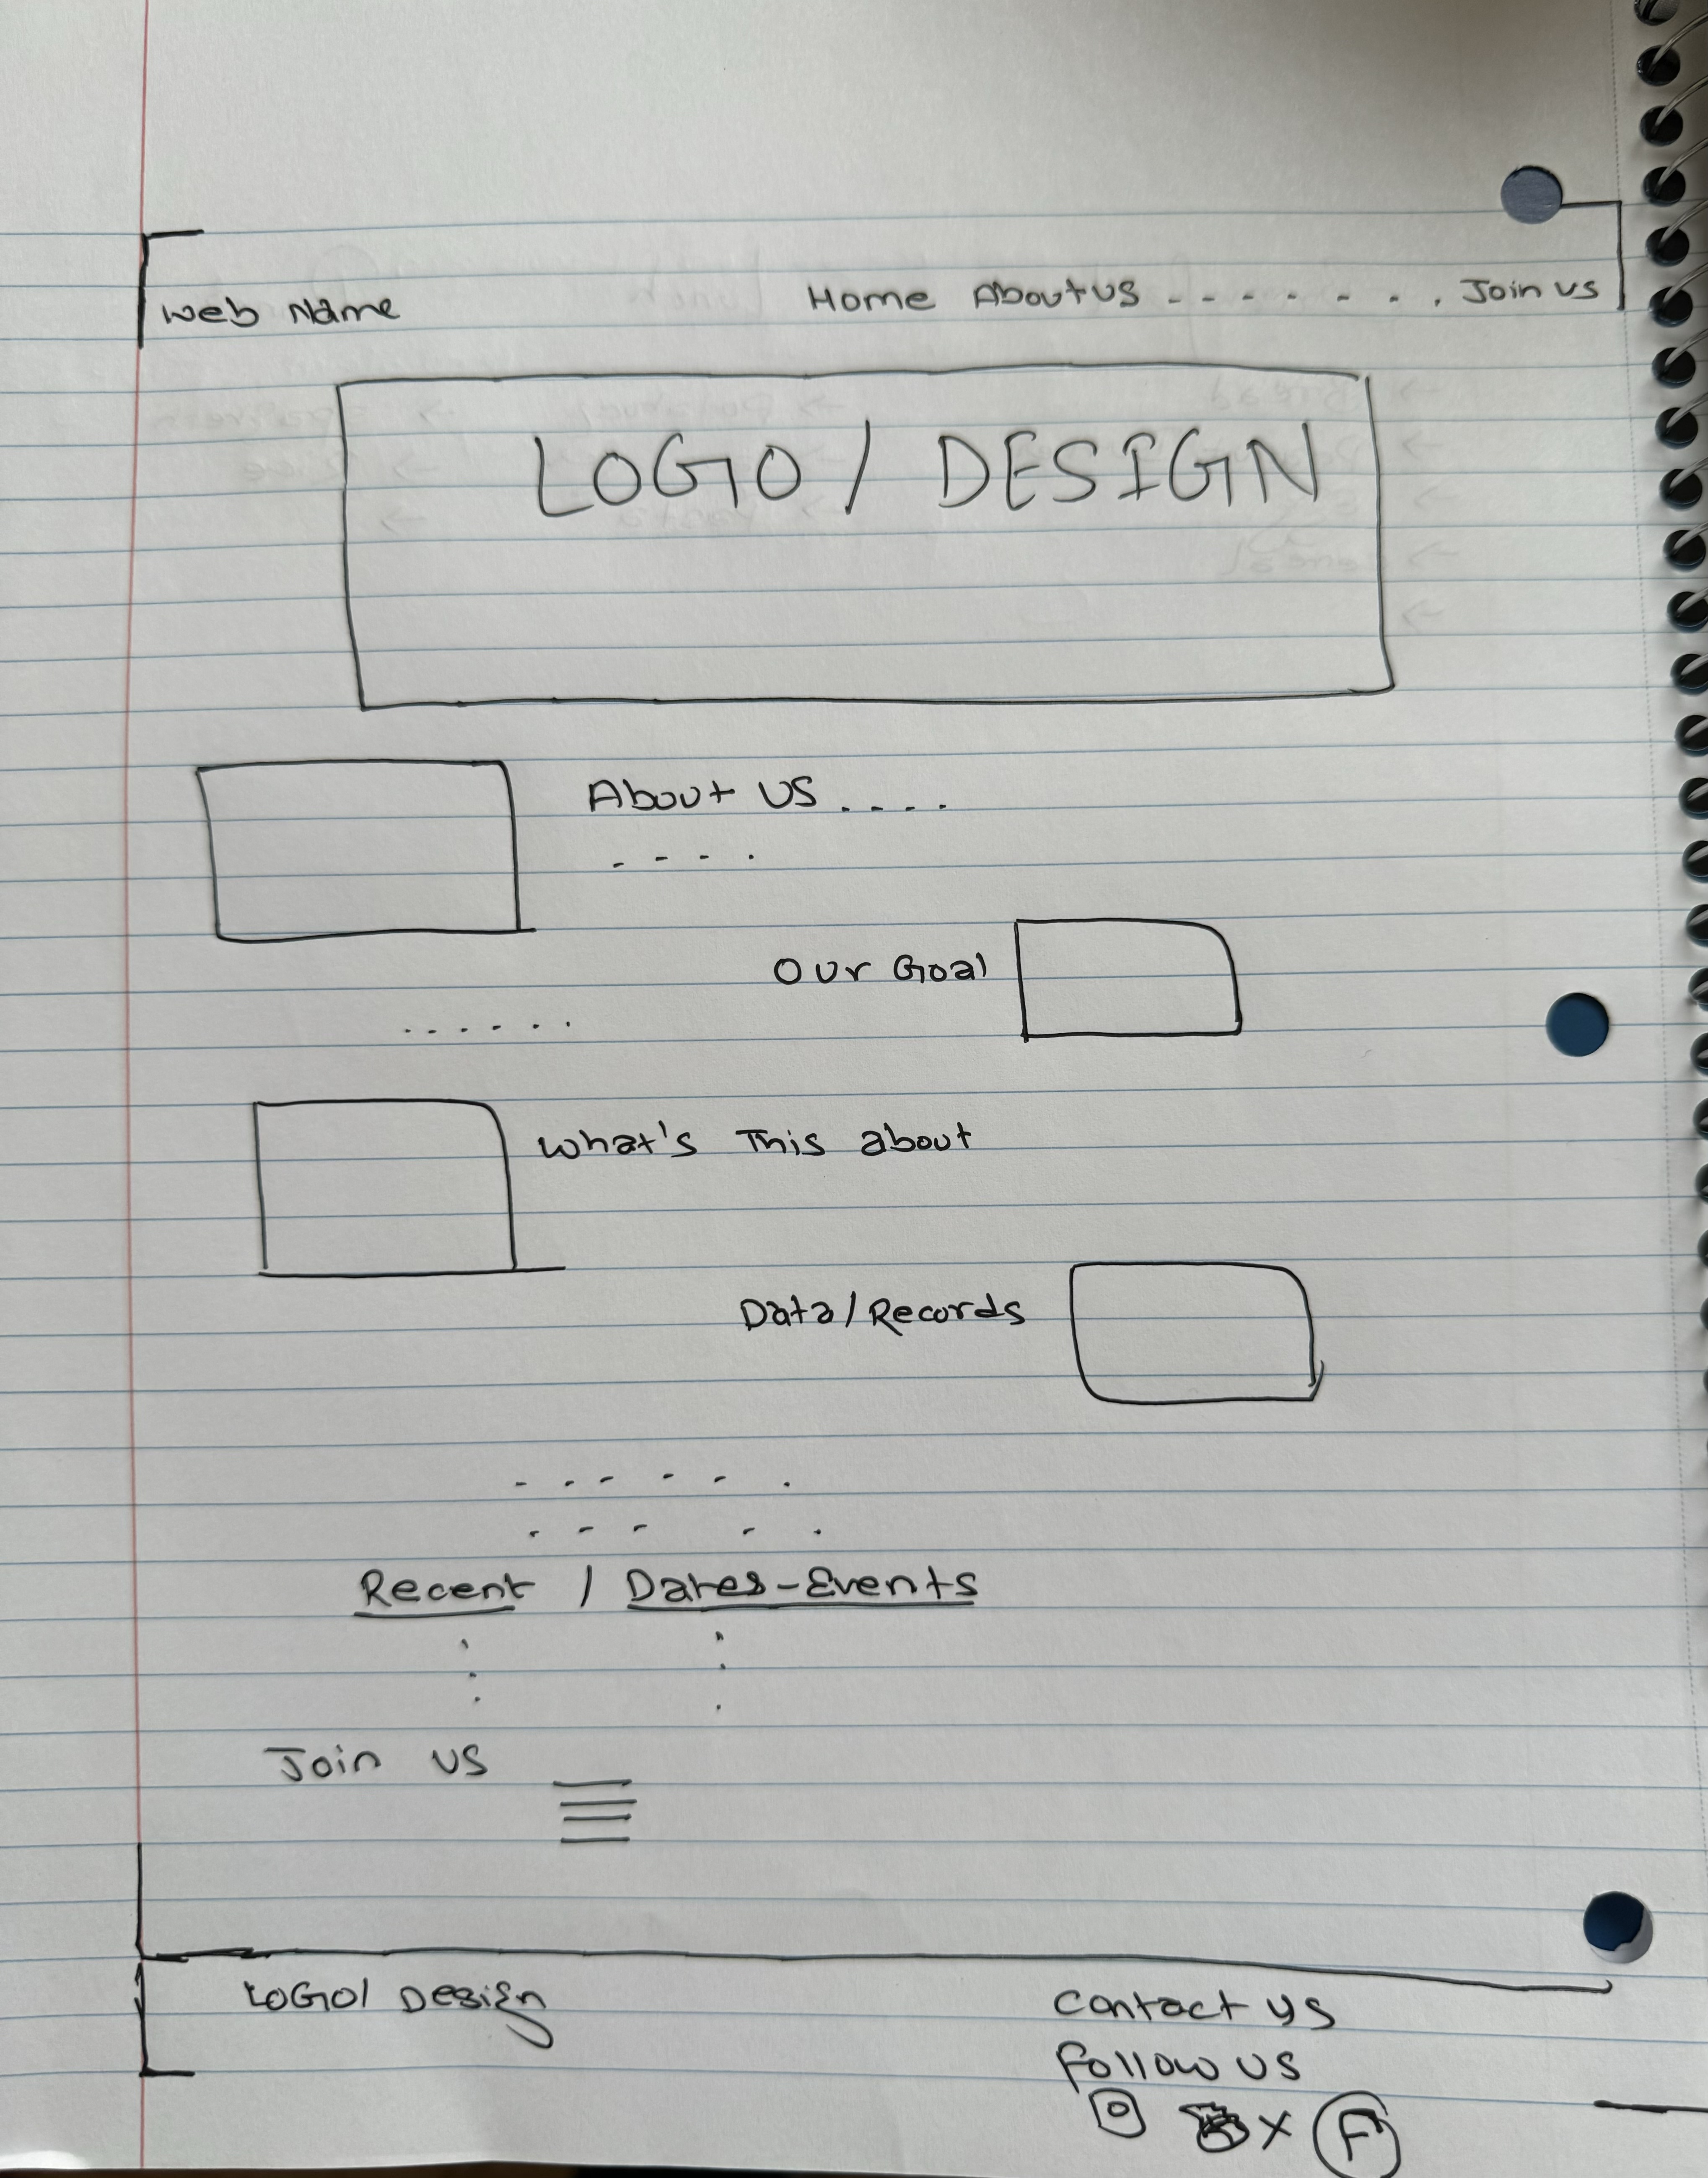 Web Name Home About us - - - - - - - . Join us
LOGO / DESIGN
About US . . . .
- - - .
Our Goal
. . . . . .
What's This about
Data/Records
- - - - - .
- - - - .
Recent / Dates-Events
Join us
LOGO/ Design
Contact us
Follow us
X F